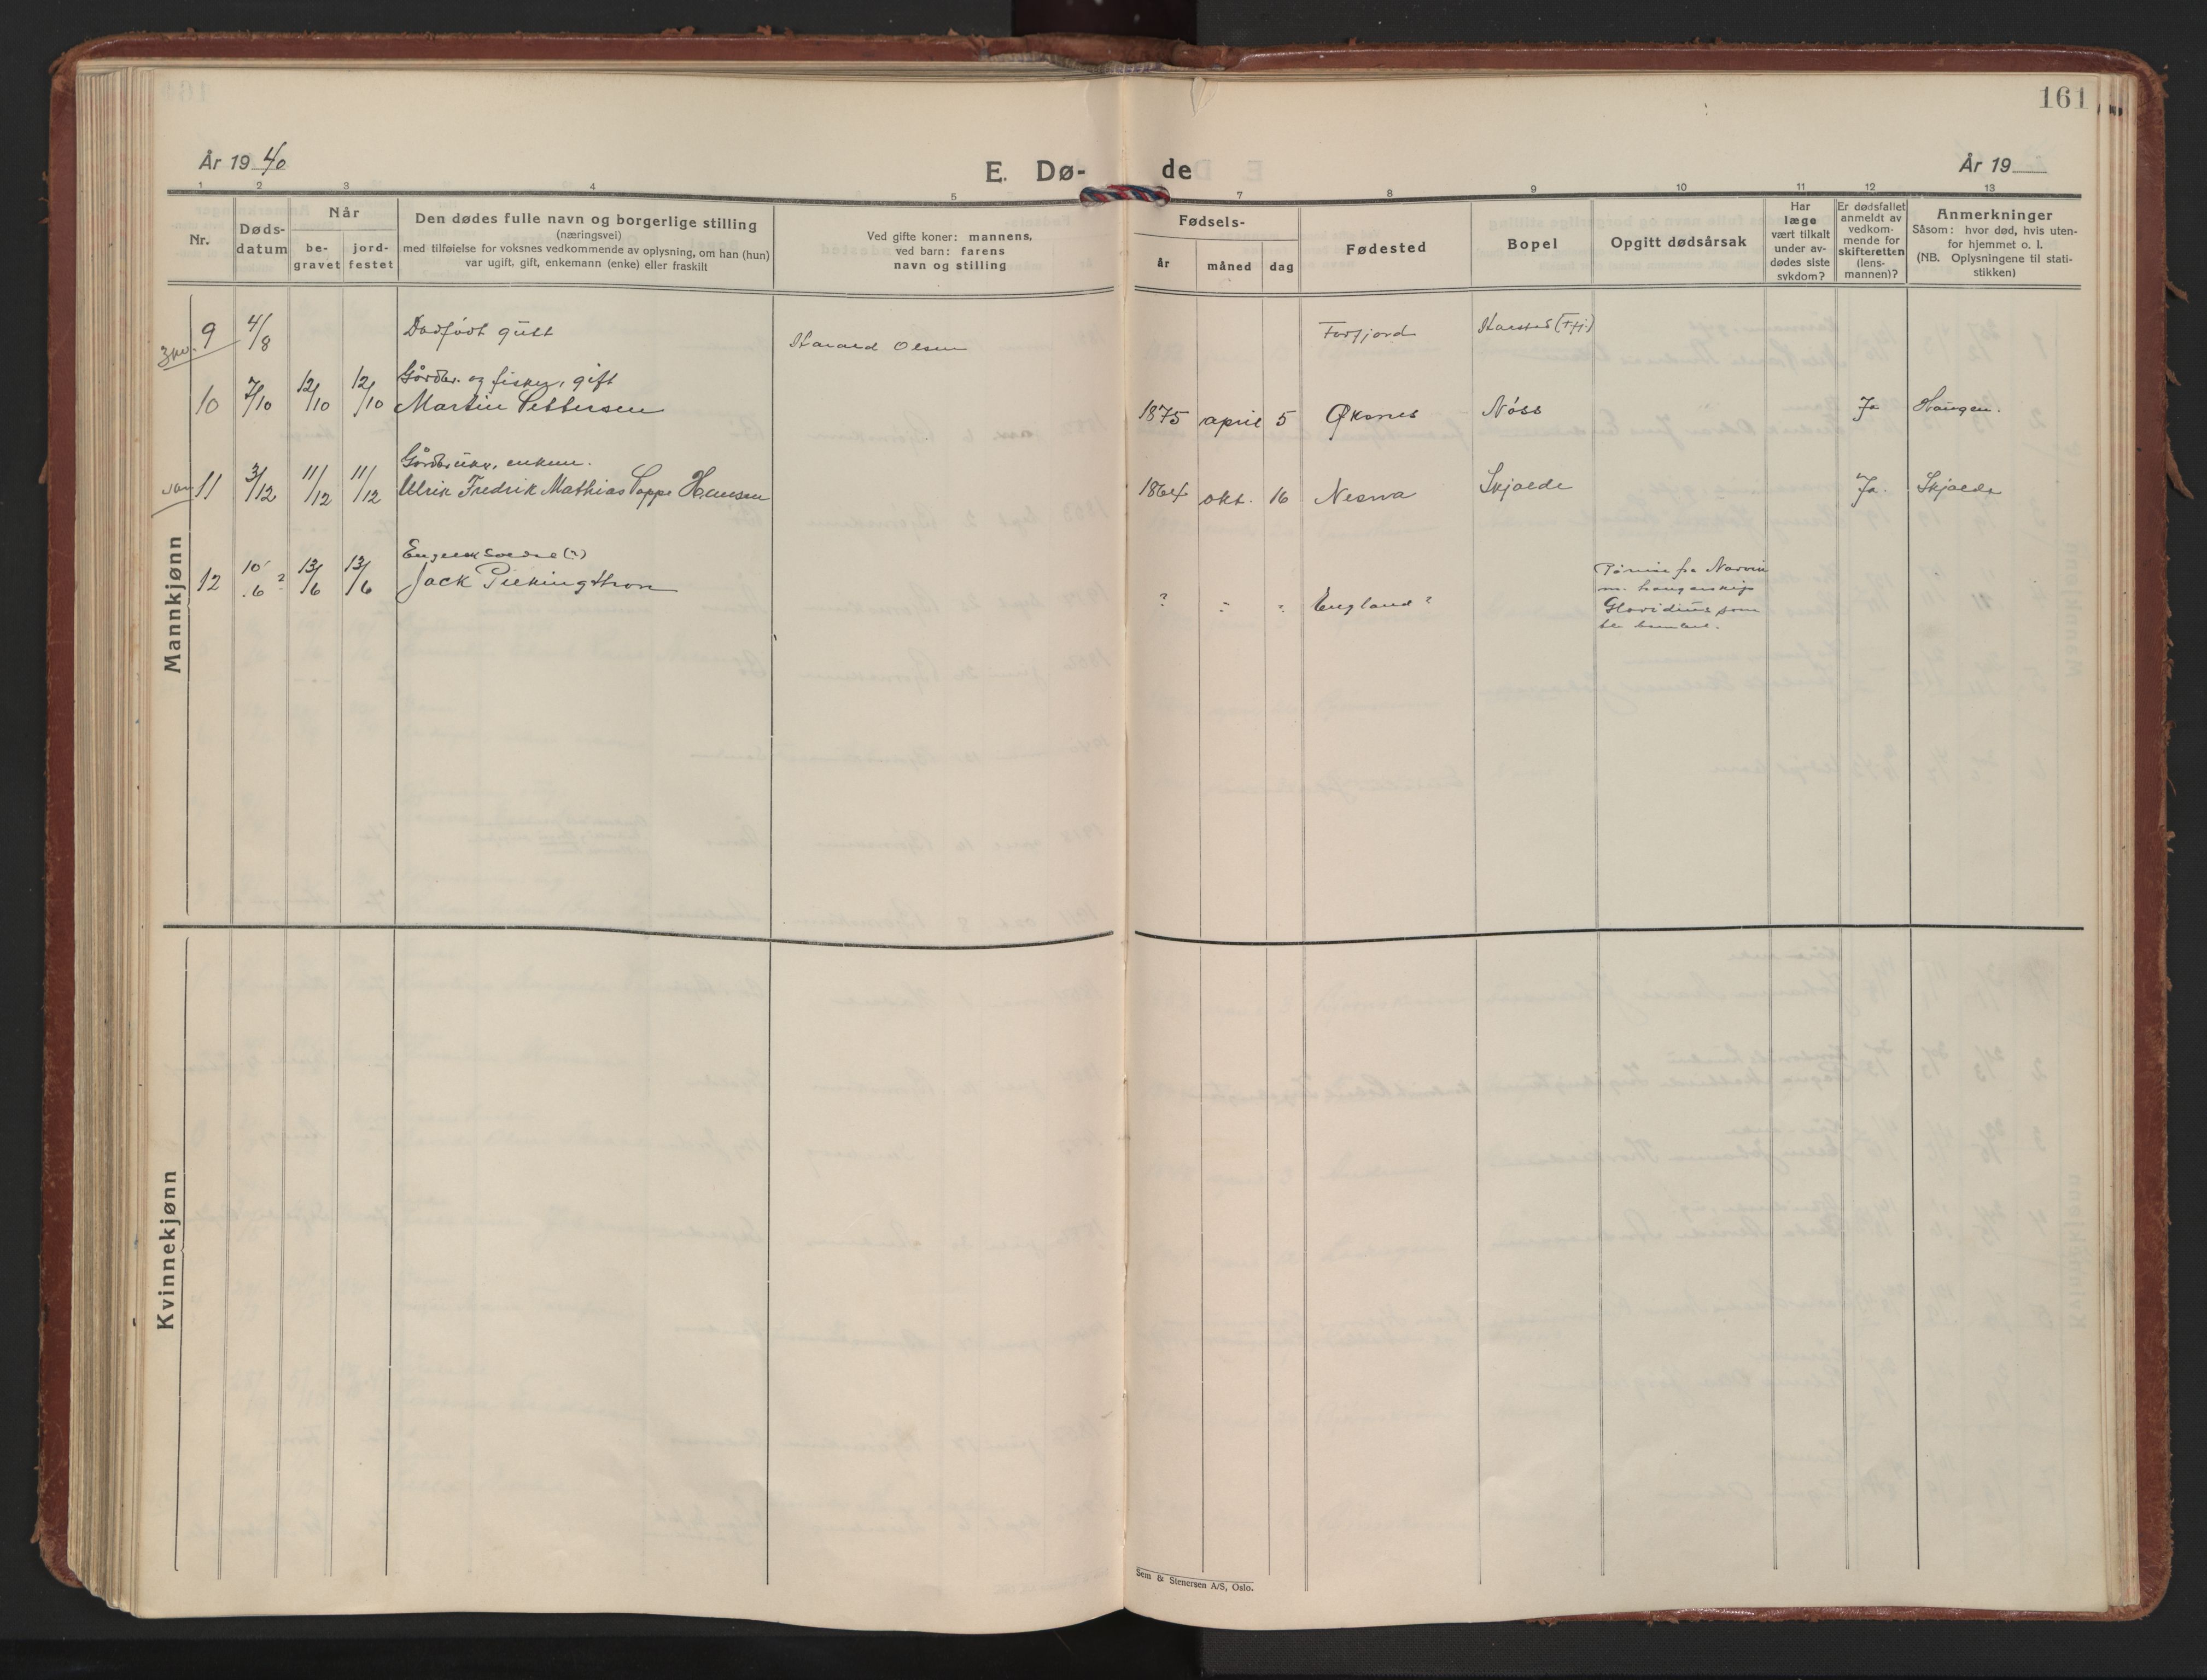 161
År 19 40
E. Dø-
de
År 19
1 2 3 4 5 7 8 9 10 11 12 13
Nr.
Døds-
datum
Når
be-
gravet
jord-
festet
Den dødes fulle navn og borgerlige stilling
(næringsvei)
med tilføielse for voksnes vedkommende av oplysning, om han (hun)
var ugift, gift, enkemann (enke) eller fraskilt
Ved gifte koner: mannens,
ved barn: farens
navn og stilling
Fødsels-
år
måned
dag
Fødested
Bopel
Opgitt dødsårsak
Har
læge
vært tilkalt
under av-
dødes siste
sykdom?
Er dødsfallet
anmeldt av
vedkom-
mende for
skifteretten
(lens-
mannen)?
Anmerkninger
Såsom: hvor død, hvis uten-
for hjemmet o. l.
(NB. Oplysningene til stati-
stikken)
Mannkjønn
9 4/8 Dødfødt gutt Harald Olsen Forfjord Harstad (Ffj.)
Gårdbr. og fisker, gift
10 7/10 12/10 12/10 Martin Pettersen 1875 april 5 Øksnes Nøss Ja Haugen.
Gårdbruker, enkem.
11 3/12 11/12 11/12 Ulrik Fredrik Mathias Coppe Hansen 1864 okt. 16 Nesna Skjolde Ja. Skjolde
Engelsk soldat (?)
12 10/6 ? 13/6 13/6 Jack ? England ?
fra Narvik
m.
som
ble
Kvinnekjønn
Sem & Stenersen A/S, Oslo.